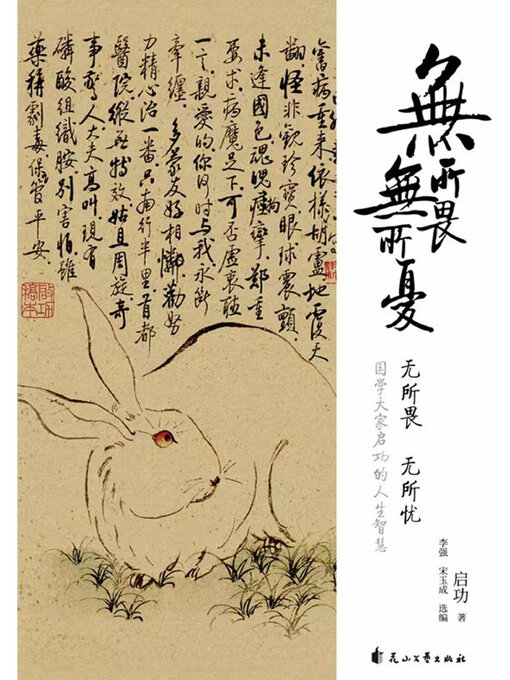 舊病重来依樣胡盧地覆天
翻怪非觀珍寶眼球震顫
未逢國色魂魄拘攣鄭重
要求病魔足下可否虛衷聽
一言親愛的你何时与我永斷
牽纏 多蒙友好相憐勸努
力精心治一番只南行半里首都
醫院縱無特效姑且周旋奇
事驚人大夫高叫現有
磷酸組織胺別害怕雖
藥稱劇毒保管平安
無所畏
無所憂
无所畏 无所忧
国学大家启功的人生智慧
启功 著
李强 宋玉成 选编
花山文艺出版社